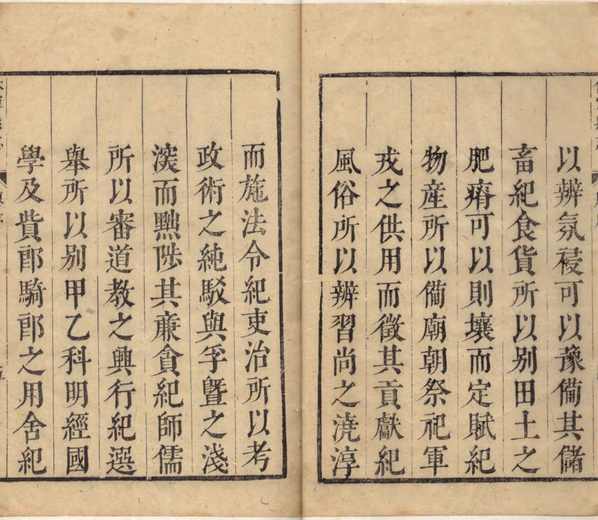 以辨氛祲可以豫僃其儲
畜紀食貨所以別田土之
肥瘠可以則壤而定賦紀
物産所以僃廟朝祭祀軍
戎之供用而徵其貢獻紀
風俗所以辨習尚之澆淳
而施法令紀吏治所以考
政術之純駁與孚暨之淺
深而黜陟其廉貪紀師儒
所以審道教之興行紀選
舉所以別甲乙科明經國
學及貲郎騎郎之用舍紀